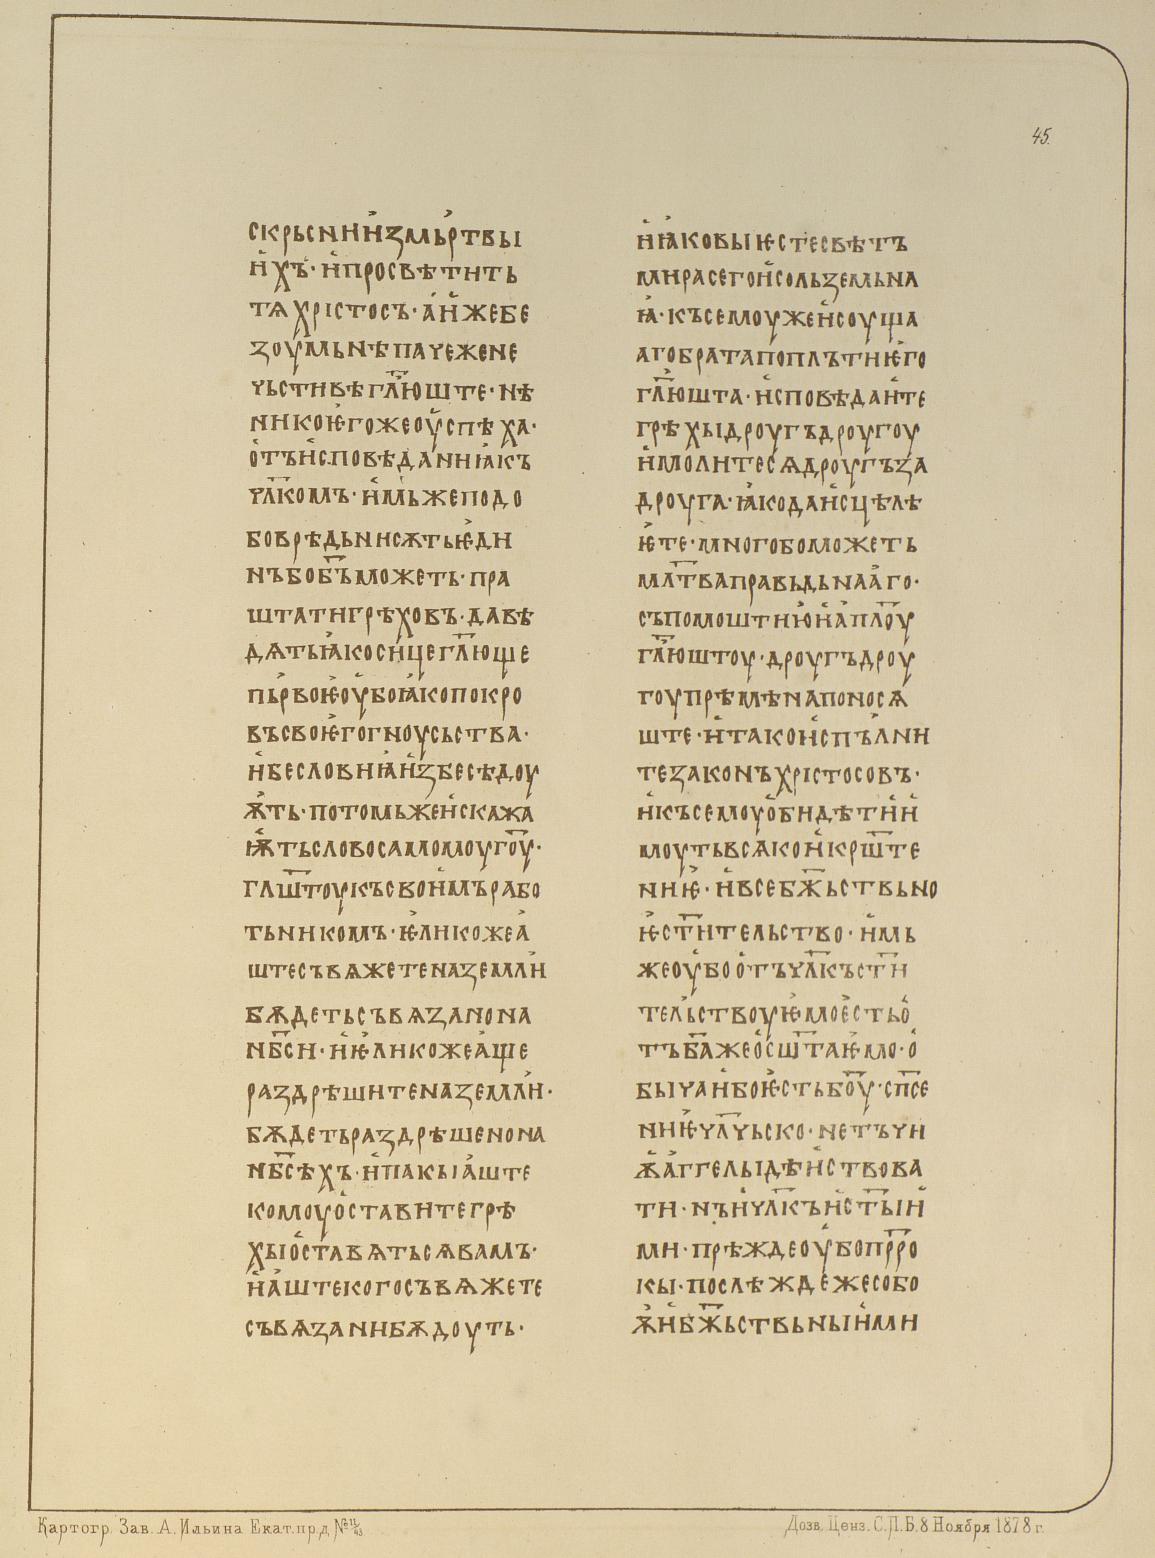 45.
скрьсни и҆змь҆ртвы
и҆хъ· и҆просвѣтить
тѧ хрїстосъ· а҆и҆жебе
зоумьнѣпачежене
чьстивѣгл҃юште· нѣ
никоѥ҆гожеоу҆спѣха·
о҆тъи҆споведанниꙗкъ
чл҃комъ· и҆мьжеподо
боврѣдьнисѫтьѥ҆ди
нъбоб҃ъможеть· пра
штатигрѣховъ· давѣ
дѧтьꙗ҆косицегл҃юще
пьрвоѥ҆оу҆боꙗкопокро
въсвоѥ҆гогноусьства·
и҆бесловниꙗ҆и҆збесѣдоу
ѫ҆ть· потомьжеи҆скажа
ѭ҆тьсловосамомоуго҃у·
глш҃тоукъсвои҆мърабо
тьникомъ· ѥ҆ликожеа҆
штесъвѧжетеназемли҆
бѫдетьсъвѧзанона
нб҃си· и҆ѥ҆ликожеа҆ще
раздрѣшитеназемли҆·
бѫдетьраздрѣшенона
нб҃сѣхъ· и҆пакыа҆ште
комоуо҆ставитегрѣ
хыо҆ставѧтьсѧвамъ·
и҆а҆штекогосъвѧжете
съвѧзанибѫдоуть·
и҆ꙗ҆ковыѥстесвѣтъ
мирасегои҆сольземьна
ꙗ҆· късемоужеи҆соуща
агобратапоплътиѥ҆го
гл҃юшта· и҆сповѣдаи҆те
грѣхыдроугъдроугоу
и҆молитесѧдроугъза
дроуга· ꙗ҆кодаи҆сцѣлѣ
ѥ҆те· многобоможеть
мл҃тваправьдьнаа҆го·
съпомоштиѭ҆и҆а҆пл҃оу
гл҃юштоу· дроугъдроу
гоупрѣмѣнапоносѧ
ште· и҆такои҆спъ҆лни
тезаконъхрїстосовъ·
и҆късемоуо҆бидѣтии҆
моутьвсѧкои҆крш҃те
ниѥ҆· и҆всебж҃ьствьно
ѥ҆ст҃ительство· и҆мь
жеоу҆боо҆тъчл҃къст҃и
тельствоуѥ҆мое҆стьо҆
тъба҃жео҆сш҃таѥ҆мо· о҆
бычаи҆боѥ҆стьбо҃у· сп҃се
ниѥ҆чл҃чьско· нетъчи
ѫ҆а҆ггелыдѣи҆ствова
ти· нъи҆чл҃къи҆ст҃ыи҆
ми· прѣждеоу҆бопрр҃о
кы· послѣждежесобо
ѫ҆и҆бж҃ьствьныи҆ми
Картогр. Зав. А. Ильина Екат. пр. д. № 11/43
Дозв. Ценз. С.П.Б. 8 Ноября 1878 г.